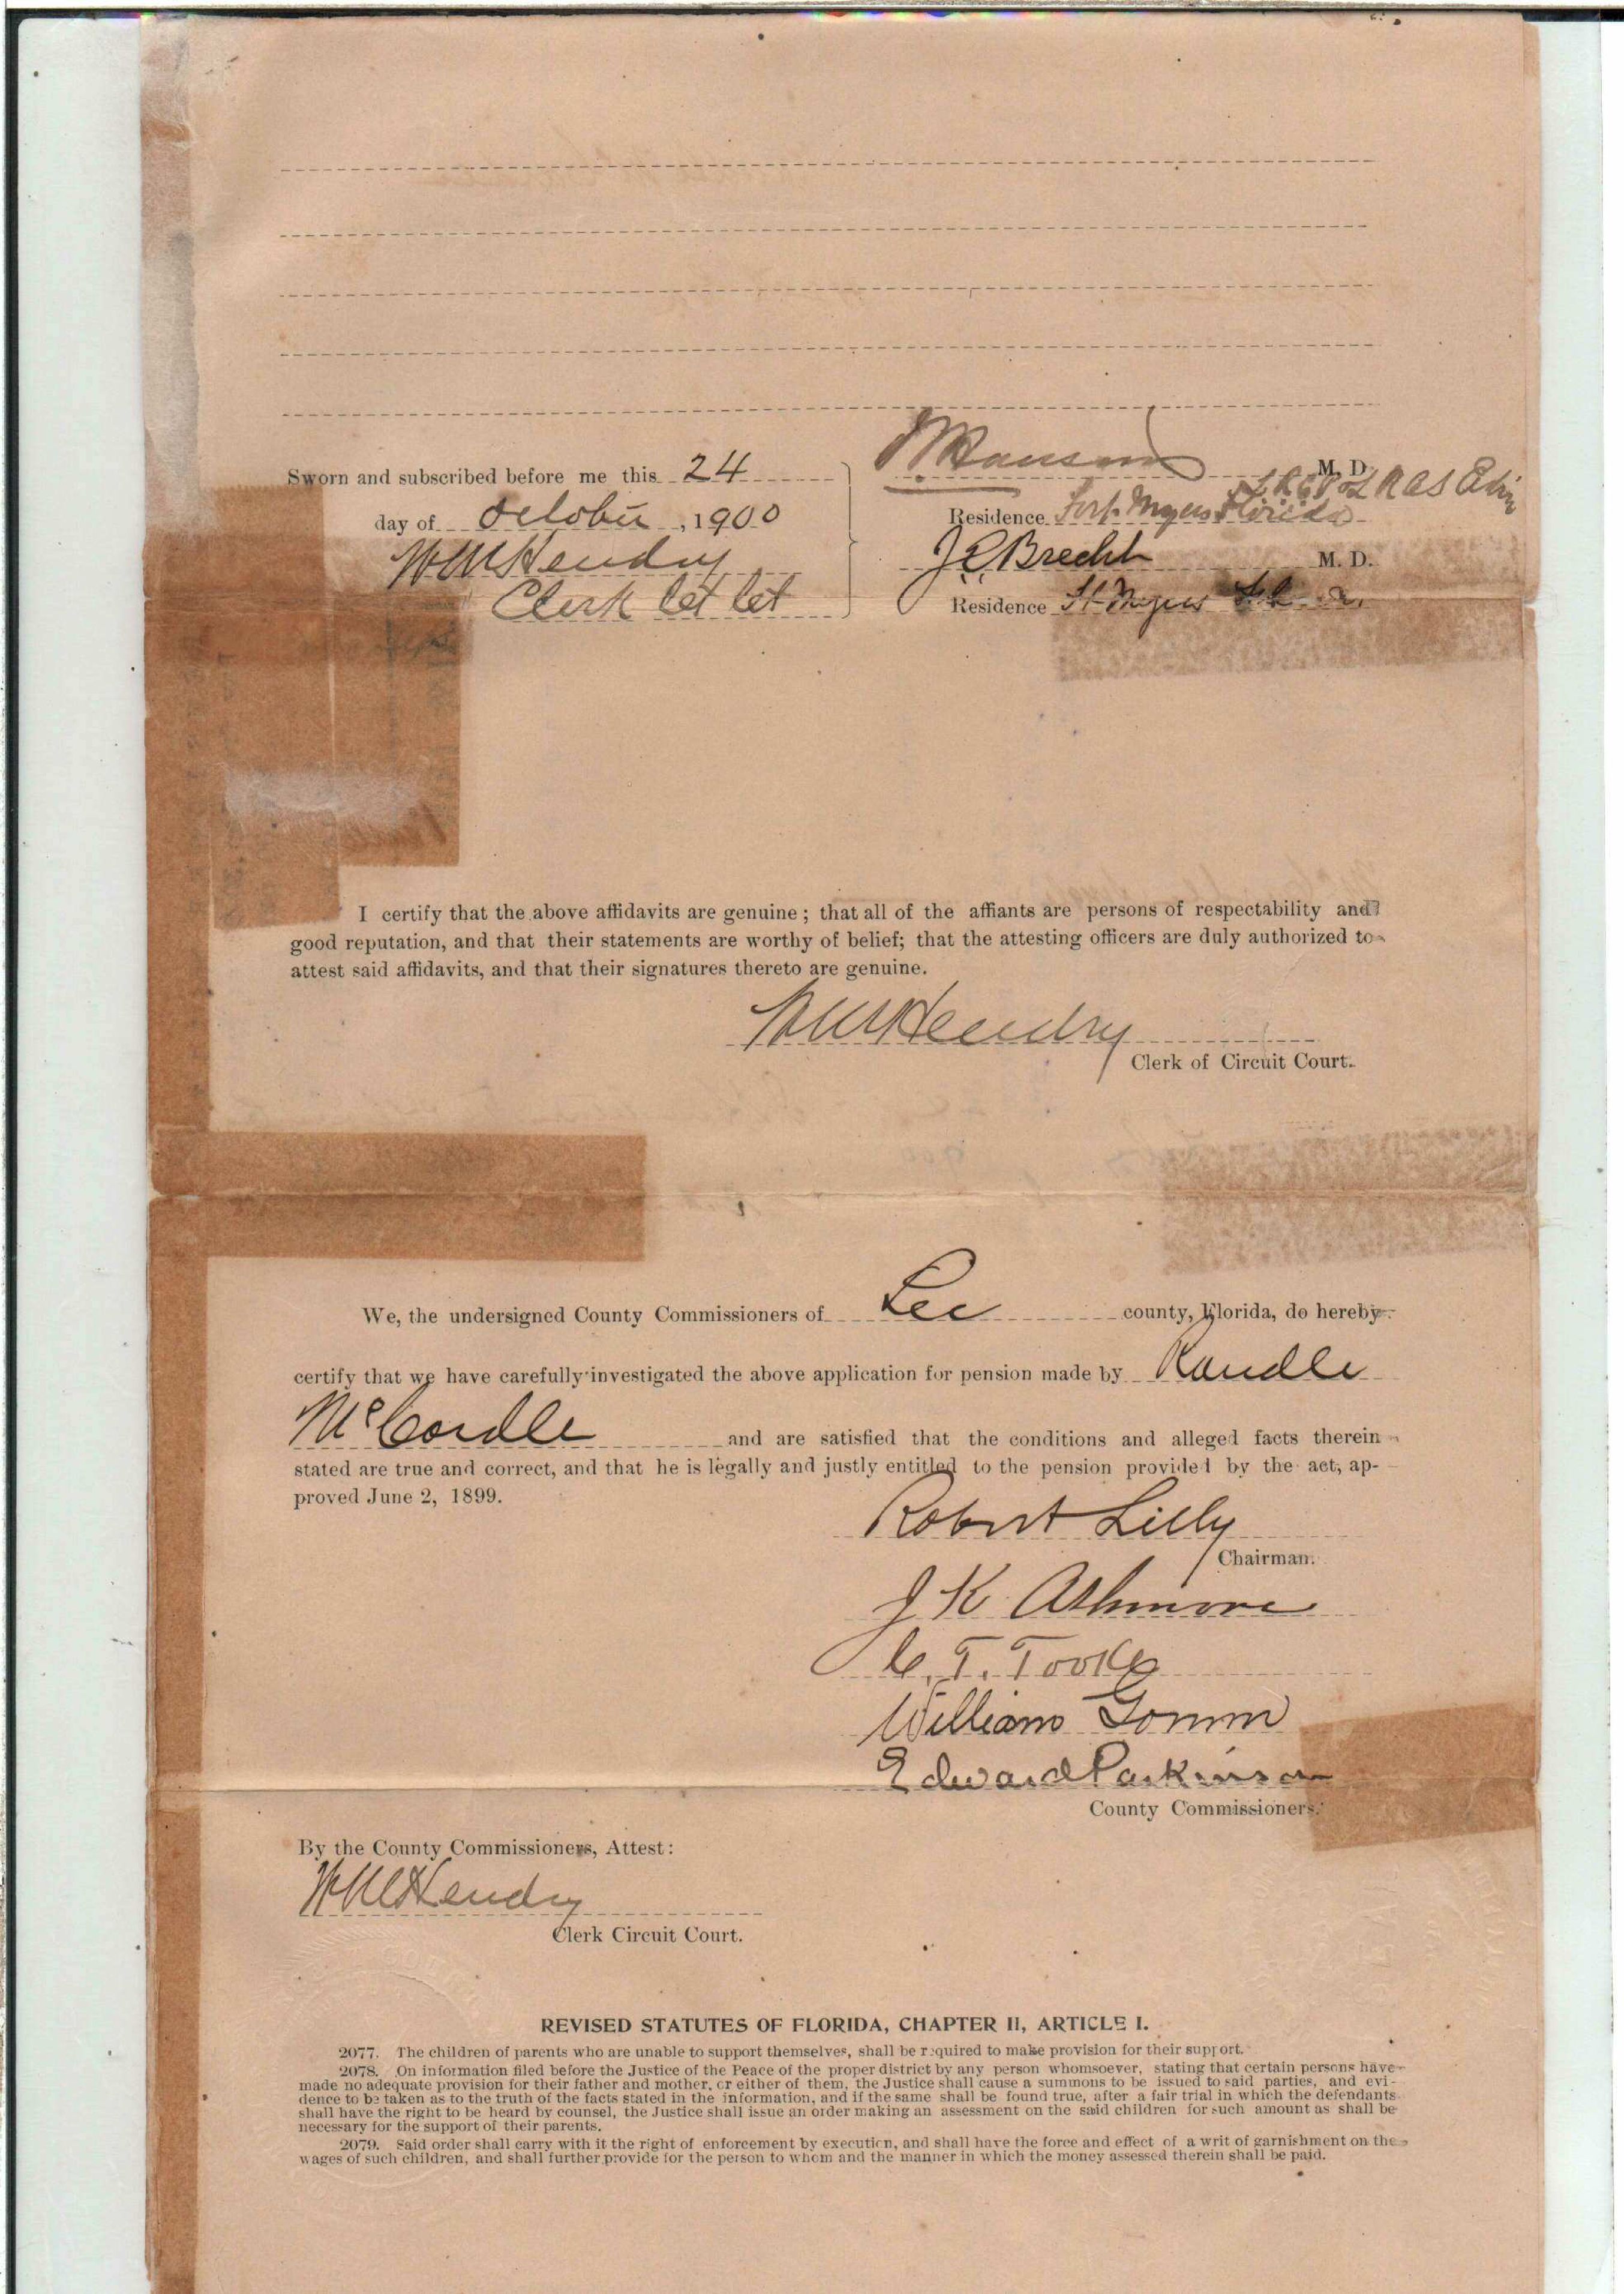 Sworn and subscribed before me this 24
day of October, 1900
W M Hendry
Clerk
M. D.
Residence Fort Myers Florida
J E Brecht M. D.
Residence Ft Myers
I certify that the above affidavits are genuine; that all of the affiants are persons of respectability and
good reputation, and that their statements are worthy of belief; that the attesting officers are duly authorized to
attest said affidavits, and that their signatures thereto are genuine.
W M Hendry
Clerk of Circuit Court.
We, the undersigned County Commissioners of Lee county, Florida, do hereby
certify that we have carefully investigated the above application for pension made by Randle
McCordle and are satisfied that the conditions and alleged facts therein
stated are true and correct, and that he is legally and justly entitled to the pension provided by the act, ap-
proved June 2, 1899.
Robert Lilly
Chairman.
J K Ashmore
C. T. Tooke
William Gomm
Edward Parkinson
County Commissioners.
By the County Commissioners, Attest:
W M Hendry
Clerk Circuit Court.
REVISED STATUTES OF FLORIDA, CHAPTER II, ARTICLE I.
2077. The children of parents who are unable to support themselves, shall be required to make provision for their support.
2078. On information filed before the Justice of the Peace of the proper district by any person whomsoever, stating that certain persons have
made no adequate provision for their father and mother, or either of them, the Justice shall cause a summons to be issued to said parties, and evi-
dence to be taken as to the truth of the facts stated in the information, and if the same shall be found true, after a fair trial in which the defendants
shall have the right to be heard by counsel, the Justice shall issue an order making an assessment on the said children for such amount as shall be
necessary for the support of their parents.
2079. Said order shall carry with it the right of enforcement by execution, and shall have the force and effect of a writ of garnishment on the
wages of such children, and shall further provide for the person to whom and the manner in which the money assessed therein shall be paid.